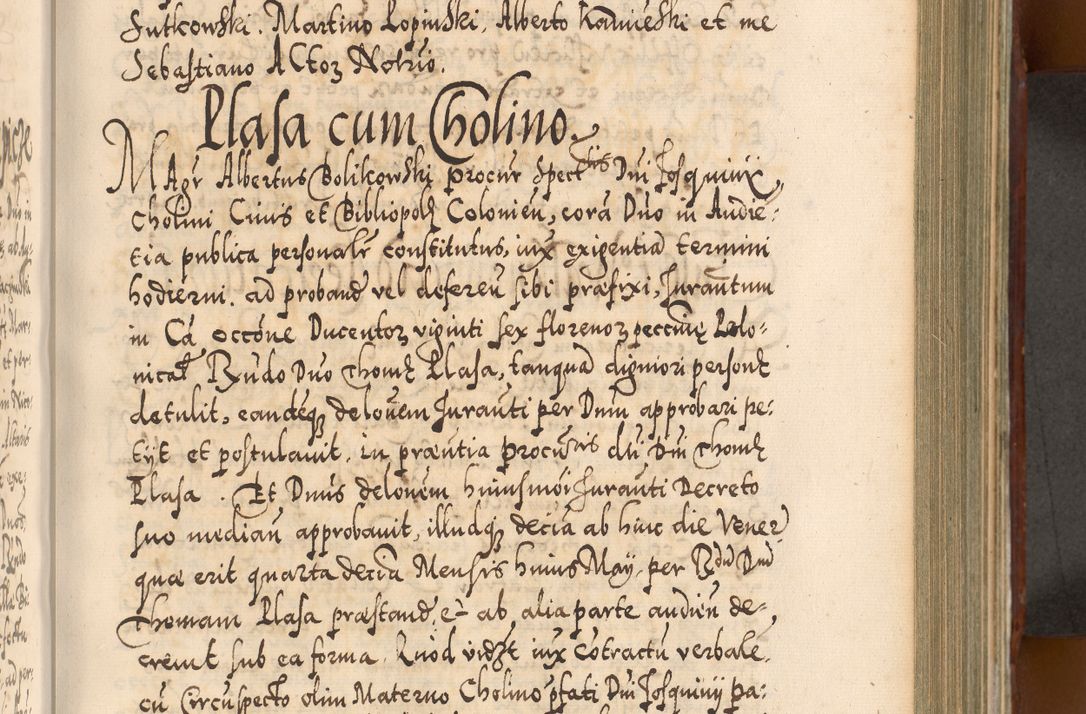 Sutkowski. Martino Lopinski, Alberto Kamieński et me
Sebastiano ACtoꝝ Notrio.
Plasa cum Cholino.
MAgr Albertus Bolikowski procur Spectlis Dni Josquinij
Cholini Ciuis et Bibliopolę Colonien, corā Dno in Audiē-
tia publica personalr constitutus, iux exigentiā termini
hodierni. ad proband vel deferen sibi præfixi, Jurautum
in Cā occōne Ducentoꝝ viginti sex florenoꝝ pecciuię Polo-
nical Rndo Dno Thomę Plasa, tanquā digniori personę
detulit, eandēqꝫ delouem Jurauti per Dnm approbari pe-
tijt et postulauit. in præntia procuris dti Dni Thomę
Plasa. Et Dnus delouem huiusmoi Jurauti Decreto
suo median approbauit, illudqꝫ decia ab hinc die Vener
quæ erit quarta decia Mensis huius May. per Rdu Dnu
Thomam Plasa præstand, et ab alia parte audien de-
creuit sub ea forma. Quod videt iux Cōtractu verbale,
cu Circuspecto olim Materno Cholino pfati Dni Josquiny pa-